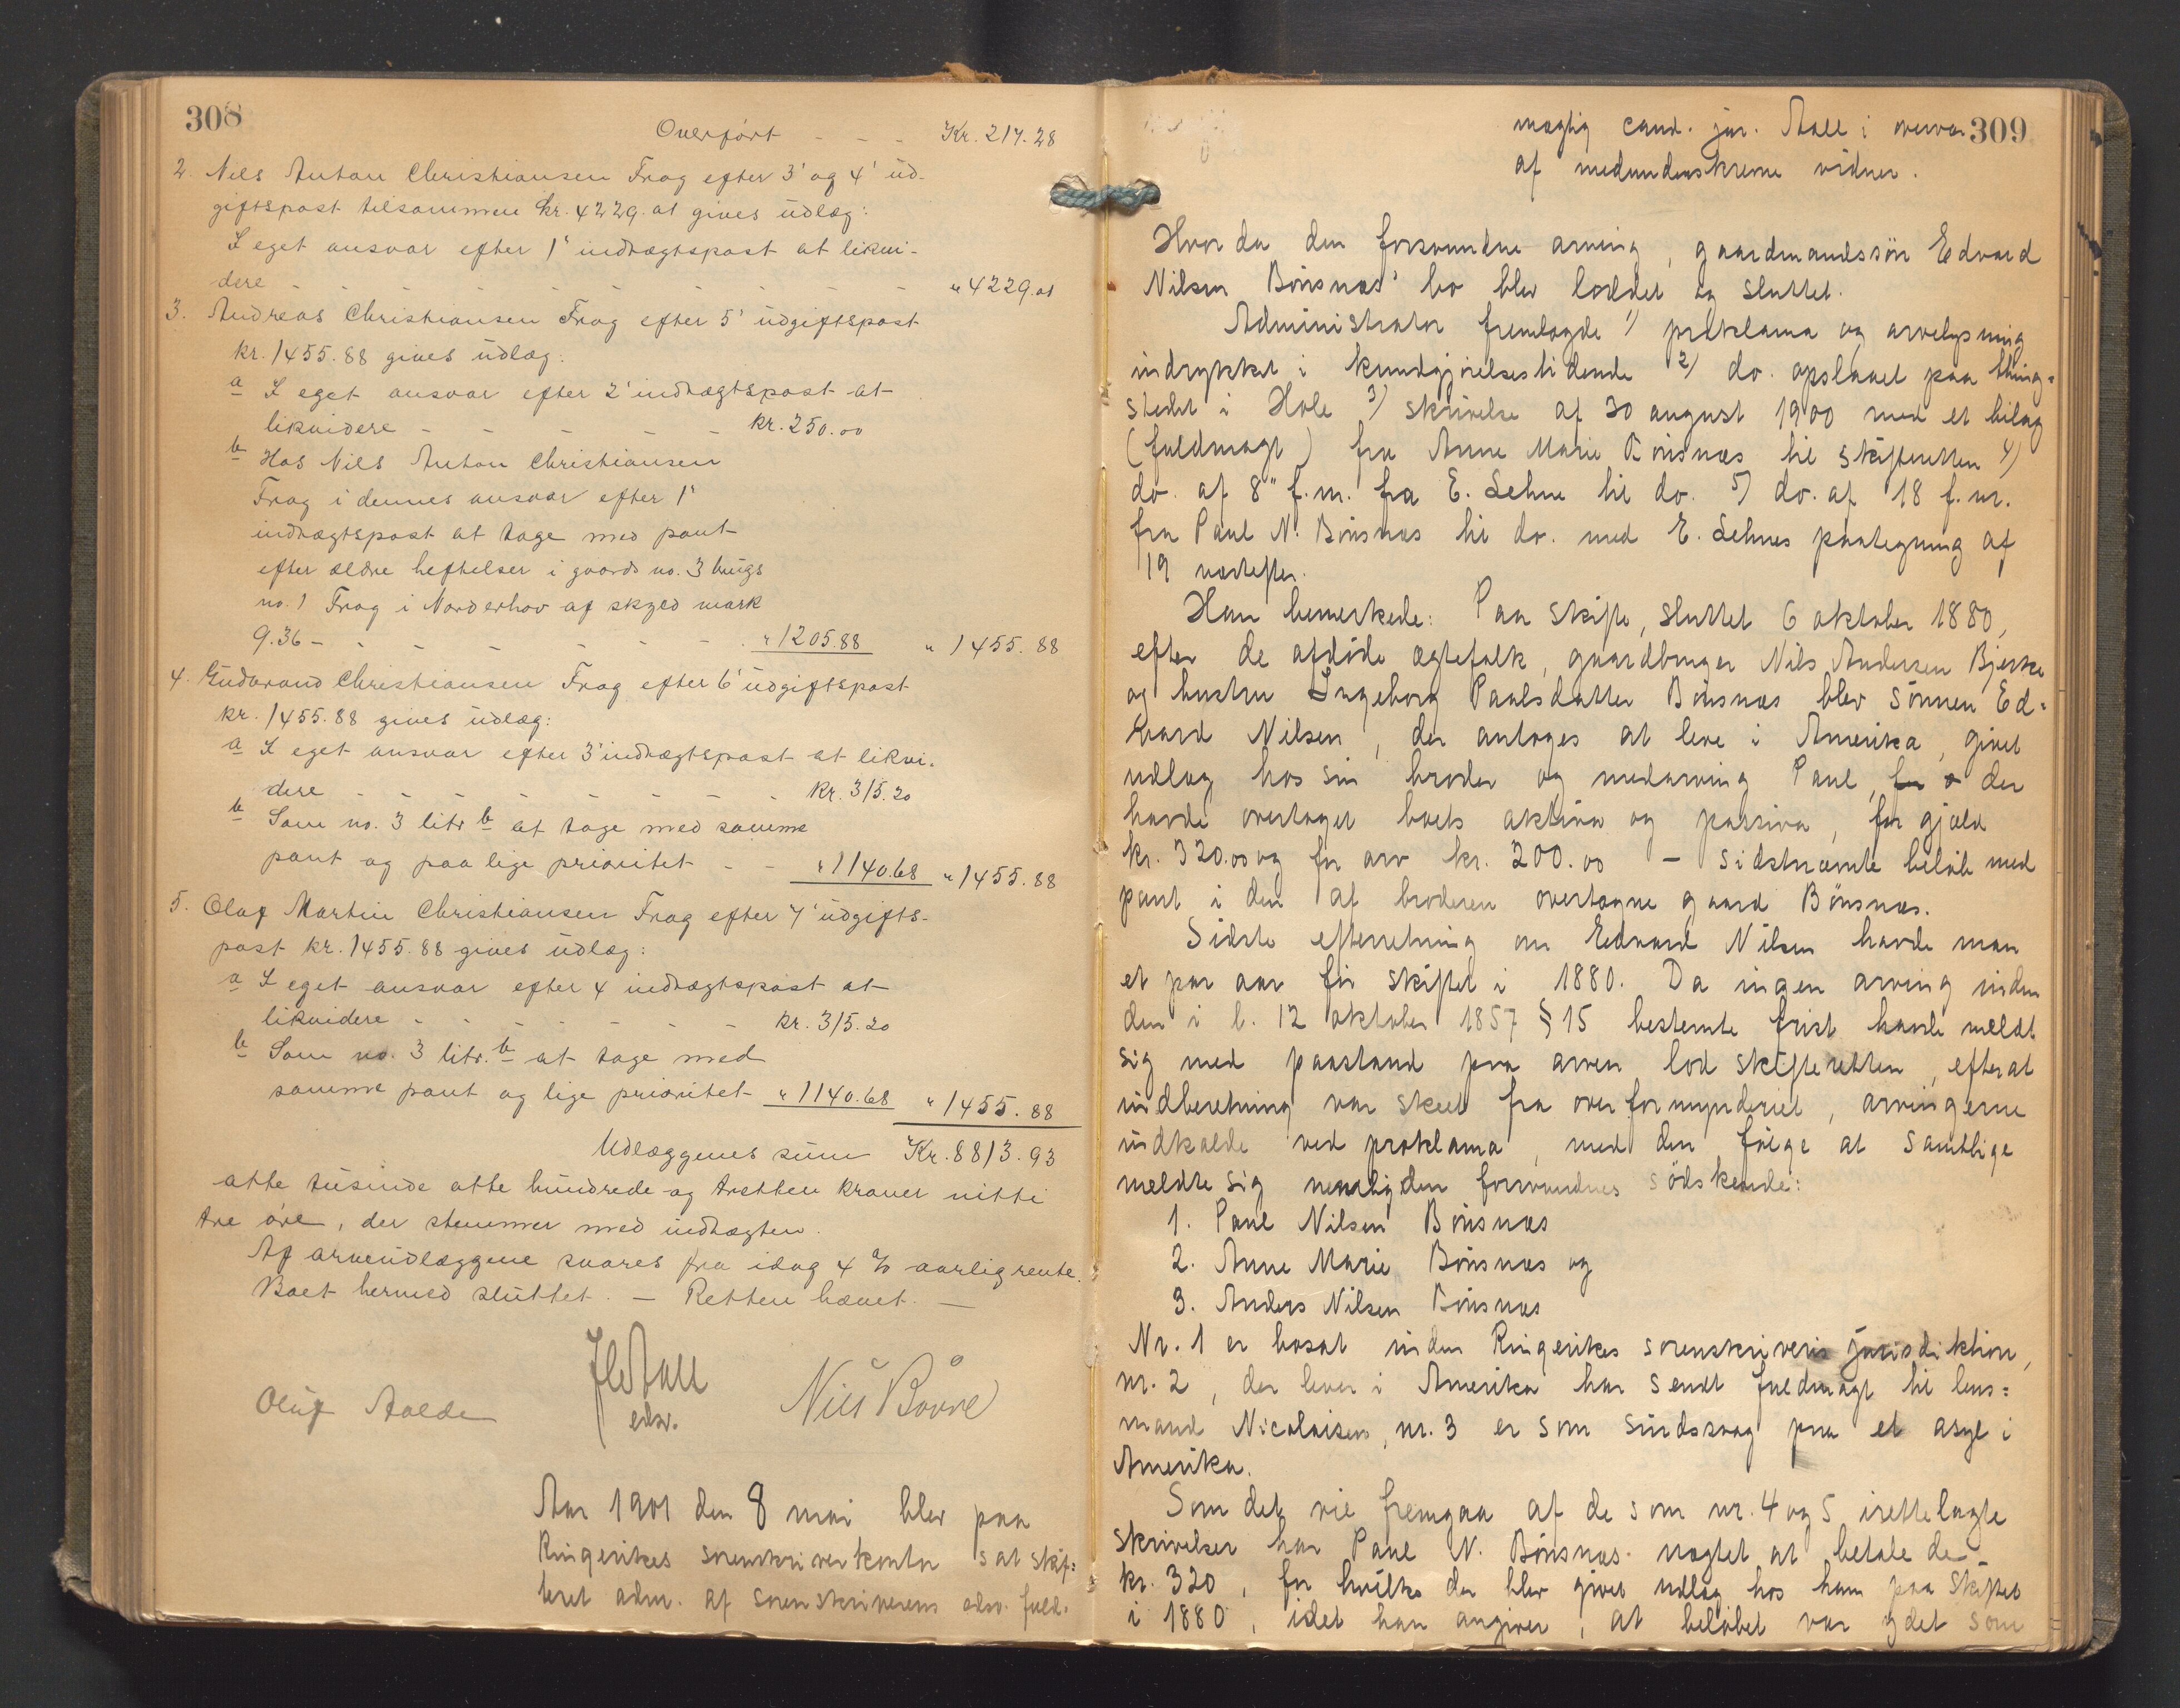 308
Overført - - - Kr. 217.28
2. Nils Anton Christiansen Frog efter 3' og 4' ud-
giftspost tilsammen kr. 4229.01 gives udlæg:
I eget ansvar efter 1' indtægtspost at likvi-
dere - - - - - - - - " 4229.01
3. Andreas Christiansen Frog efter 5' udgiftspost
kr. 1455.88 gives udlæg:
a I eget ansvar efter 2' indtægtspost at
likvidere - - - - - kr. 250.00
b Hos Nils Anton Christiansen
Frog i dennes ansvar efter 1'
indtægtspost at tage med pant
efter ældre heftelser i gaards no. 3 brugs
no. 1 Frog i Norderhov af skyld mark
9.36 - - - - - - " 1205.88 " 1455.88
4. Gudbrand Christiansen Frog efter 6' udgiftspost
kr. 1455.88 gives udlæg:
a I eget ansvar efter 3' indtægtspost at likvi-
dere - - - - - - - kr. 315.20
b Som no. 3 litr b at tage med samme
pant og paa lige prioritet - - " 1140.68 " 1455.88
5. Olaf Martin Christiansen Frog efter 7' udgifts-
post kr. 1455.88 gives udlæg:
a I eget ansvar efter 4 indtægtspost at
likvidere - - - - - - kr. 315.20
b Som no. 3 litr. b at tage med
samme pant og lige prioritet " 1140.68 " 1455.88
Udlæggenes sum Kr. 8813.93
otte tusinde otte hundrede og tretten kroner nitti
tre øre, der stemmer med indtægten.
Af arveudlæggene svares fra idag 4 % aarlig rente.
Boet hermed sluttet. — Retten hævet. —
Aall
edsv.
Oluf Nils
Aar 1901 den 8 mai blev paa
Ringerikes sorenskriverkontor sat skif=
teret adm. af sorenskriverens edsv. fuld-
309
mægtig cand. jur. Aall i overvær
af medunderskrevne vidner.
Hvor da den forsvundne arving, gaardmandssøn Edvard
Nilsen Bønsnæs' bo blev loddet og sluttet.
Administrator fremlagde 1) proklama og arvelysning
indrykket i kundgjørelsestidende 2) do. opslaaet paa thing=
stedet i Hole 3) skrivelse af 30 august 1900 med et bilag
(fuldmagt) fra Anne Marie Bønsnæs til skifteretten 4)
do. af 8" f.m. fra E. Lehne til do. 5) do. af 18 f.m.
fra Paul N. Bønsnæs til do. med E. Lehnes paategning af
19 næstefter.
Han bemerkede: Paa skifte, sluttet 6 oktober 1880,
efter de afdøde ægtefolk, gaardbruger Nils Andersen Bjerke
og hustru Ingeborg Paulsdatter Bønsnæs blev sønnen Ed=
vard Nilsen, der antages at leve i Amerika, givet
udlæg hos sin broder og medarving Paul, der
havde overtaget boets aktiva og passiva, for gjæld
kr. 320.00 og for arv kr. 200.00 - sidstnævnte beløb med
pant i den af broderen overtagne gaard Bønsnæs.
Sidste efterretning om Edvard Nilsen havde man
et par aar før skiftet i 1880. Da ingen arving inden
den i l. 12 oktober 1857 § 15 bestemte frist havde meldt
sig med paastand paa arven lod skifteretten, efterat
indberetning var skeet fra overformynderiet, arvingerne
indkalde ved proklama, med den følge at samtlige
meldte sig nemlig den forsvundnes södskende:
1. Paul Nilsen Bønsnæs
2. Anne Marie Bønsnæs og
3. Anders Nilsen Bønsnæs
Nr. 1 er bosat inden Ringerikes sorenskriveris jurisdiktion,
nr. 2, der lever i Amerika har sendt fuldmagt til lens=
mand Nicolaisen, nr. 3 er som sindssvag paa et asyl i
Amerika.
Som det vil fremgaa af de som nr. 4 og 5 irettelagte
skrivelser har Paul N. Bønsnæs nægtet at betale de
kr. 320, for hvilke der blev givet udlæg hos ham paa skiftet
i 1880, idet han angiver, at beløbet var ydet som